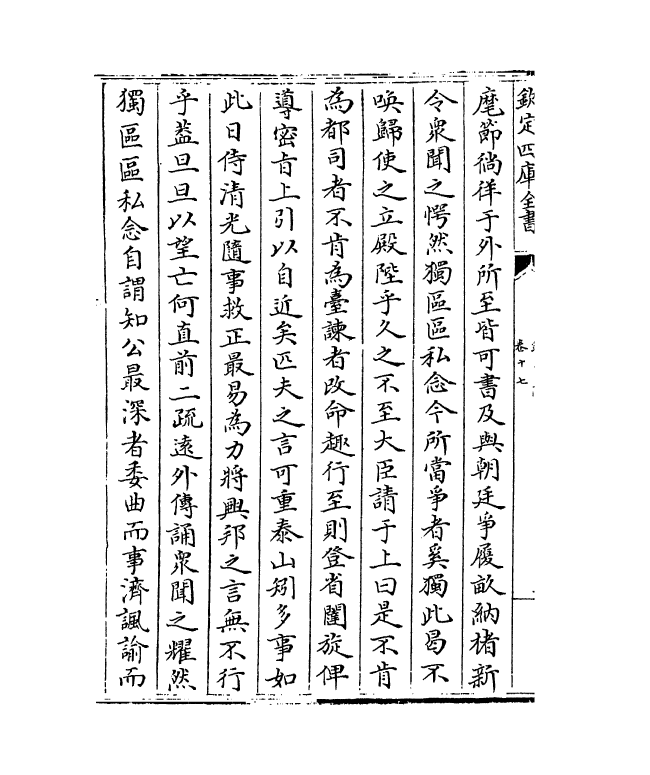 欽定四庫全書
卷十七
麾節徜徉于外所至皆可書及與朝廷爭履畝納楮新
令衆聞之愕然獨區區私念今所當爭者奚獨此曷不
喚歸使之立殿陛乎久之不至大臣請于上曰是不肯
為都司者不肯為臺諫者改命趣行至則登省闥旋俾
導密旨上引以自近矣匹夫之言可重泰山矧多事如
此日侍清光隨事救正最易為力將興邦之言無不行
乎葢旦旦以望亡何直前二疏遠外傳誦衆聞之耀然
獨區區私念自謂知公最深者委曲而事濟諷諭而